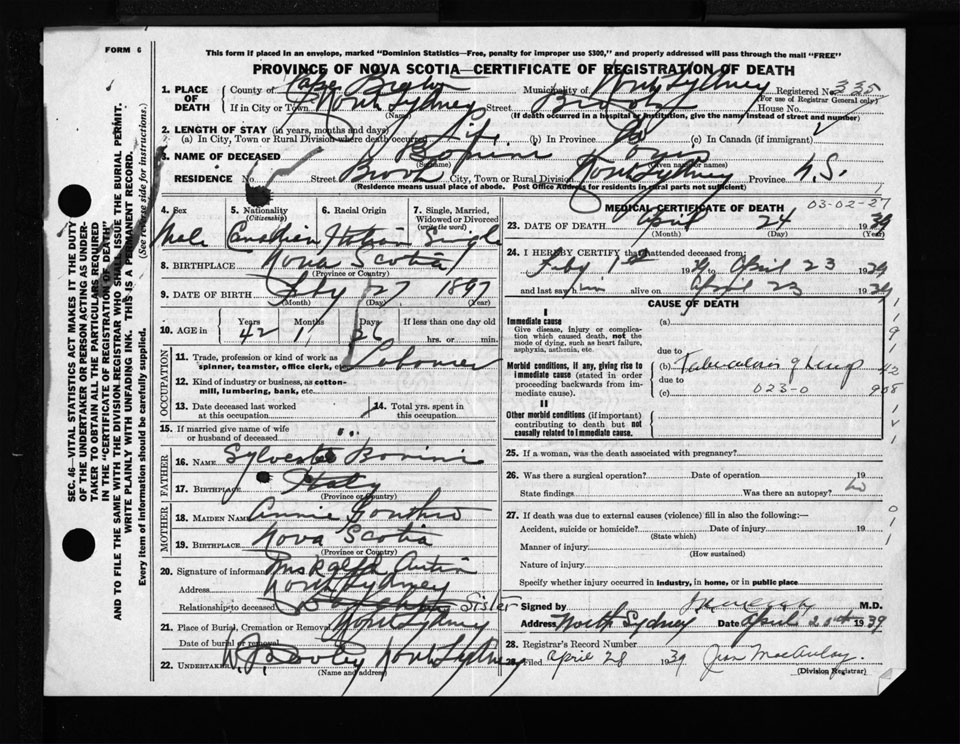 FORM 6
This form if placed in an envelope, marked "Dominion Statistics—Free, penalty for improper use $300," and properly addressed will pass through the mail "FREE"
PROVINCE OF NOVA SCOTIA—CERTIFICATE OF REGISTRATION OF DEATH
1. PLACE OF DEATH
County of Cape Breton Municipality of North Sydney Registered No. 335
(For use of Registrar General only)
If in City or Town North Sydney Street Brook House No.
(Name) (If death occurred in a hospital or institution, give the name instead of street and number)
2. LENGTH OF STAY (in years, months and days)
(a) In City, Town or Rural Division where death occurred Life (b) In Province (c) In Canada (if immigrant)
3. NAME OF DECEASED Bonini
(Surname) (Given name or names)
RESIDENCE No. Street Brook City, Town or Rural Division North Sydney Province N.S.
(Residence means usual place of abode. Post Office Address for residents in rural parts not sufficient)
4. Sex Male
5. Nationality (Citizenship) Canadian
6. Racial Origin Italian
7. Single, Married, Widowed or Divorced (write the word) Single
8. BIRTHPLACE Nova Scotia
(Province or Country)
9. DATE OF BIRTH 27 1897
(Month) (Day) (Year)
10. AGE in Years 42 Months 1 Days 26 If less than one day old hrs. or min.
OCCUPATION
11. Trade, profession or kind of work as spinner, teamster, office clerk, etc. Laborer
12. Kind of industry or business, as cotton-mill, lumbering, bank, etc.
13. Date deceased last worked at this occupation
14. Total yrs. spent in this occupation
15. If married give name of wife or husband of deceased
FATHER
16. NAME Sylvester Bonini
17. BIRTHPLACE Italy
(Province or Country)
MOTHER
18. MAIDEN NAME Annie Gouthro
19. BIRTHPLACE Nova Scotia
(Province or Country)
20. Signature of informant Mrs Ralph
Address North Sydney
Relationship to deceased Daughter Sister
21. Place of Burial, Cremation or Removal North Sydney
Date of burial or removal
22. UNDERTAKER North Sydney
(Name and address)
MEDICAL CERTIFICATE OF DEATH 03-02-27
23. DATE OF DEATH April 24 1939
(Month) (Day) (Year)
24. I HEREBY CERTIFY that I attended deceased from:
Feby 1st 1939 to April 23 1939
and last saw him alive on April 23 1939
CAUSE OF DEATH
I
Immediate cause
Give disease, injury or complication which caused death, not the mode of dying, such as heart failure, asphyxia, asthenia, etc.
(a)
due to
Morbid conditions, if any, giving rise to immediate cause (stated in order proceeding backwards from immediate cause).
(b) Tuberculosis of Lung
due to
(c) 023-0
II
Other morbid conditions (if important) contributing to death but not causally related to immediate cause.
25. If a woman, was the death associated with pregnancy?
26. Was there a surgical operation? Date of operation 19
State findings Was there an autopsy? no
27. If death was due to external causes (violence) fill in also the following:—
Accident, suicide or homicide? Date of injury 19
(State which)
Manner of injury
(How sustained)
Nature of injury
Specify whether injury occurred in industry, in home, or in public place
Signed by M.D.
Address North Sydney Date April 1939
28. Registrar's Record Number
Filed April 28 1939 Jean MacAulay.
(Division Registrar)
SEC. 46—VITAL STATISTICS ACT MAKES IT THE DUTY OF THE UNDERTAKER OR PERSON ACTING AS UNDERTAKER TO OBTAIN ALL THE PARTICULARS REQUIRED IN THE "CERTIFICATE OF REGISTRATION OF DEATH" AND TO FILE THE SAME WITH THE DIVISION REGISTRAR WHO SHALL ISSUE THE BURIAL PERMIT.
WRITE PLAINLY WITH UNFADING INK. THIS IS A PERMANENT RECORD.
Every item of information should be carefully supplied. (See reverse side for instructions.)